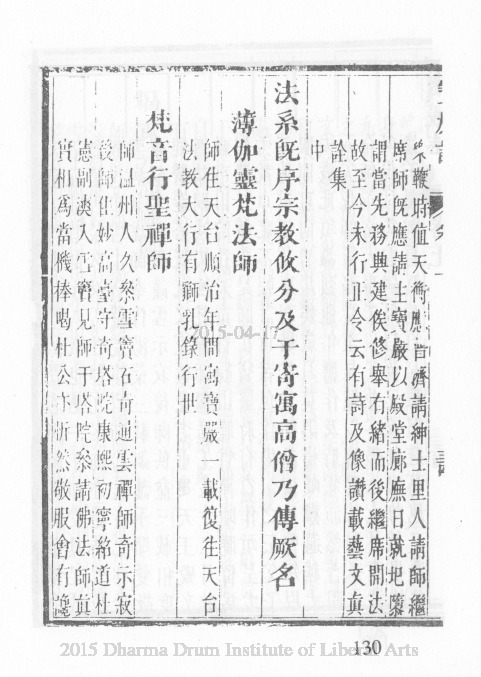 鞭時值天衡應旨濟請紳士里人請師繼
席師旣應請主寶嚴以殿堂廊廡日就圯
謂當先務興建俟修舉有緒而後繼席開法
故至今未行正令云有詩及像讚載藝文真
詮集
中
法系旣序宗教攸分及于寄寓高僧乃傳厥名
薄伽靈梵法師
師住天台順治年間寓寶嚴一載復往天台
法教大行有獅乳錄行世
梵音行聖禪師
師溫州人久叅雪竇石奇通雲禪師奇示寂
後師住妙高臺守奇塔院康熙初寧紹道杜
憲副漺入雪竇見師于塔院叅請佛法師真
實相爲當機捧喝杜公亦折然敬服會有
2015-04-17
130
2015 Dharma Drum Institute of Liberal Arts